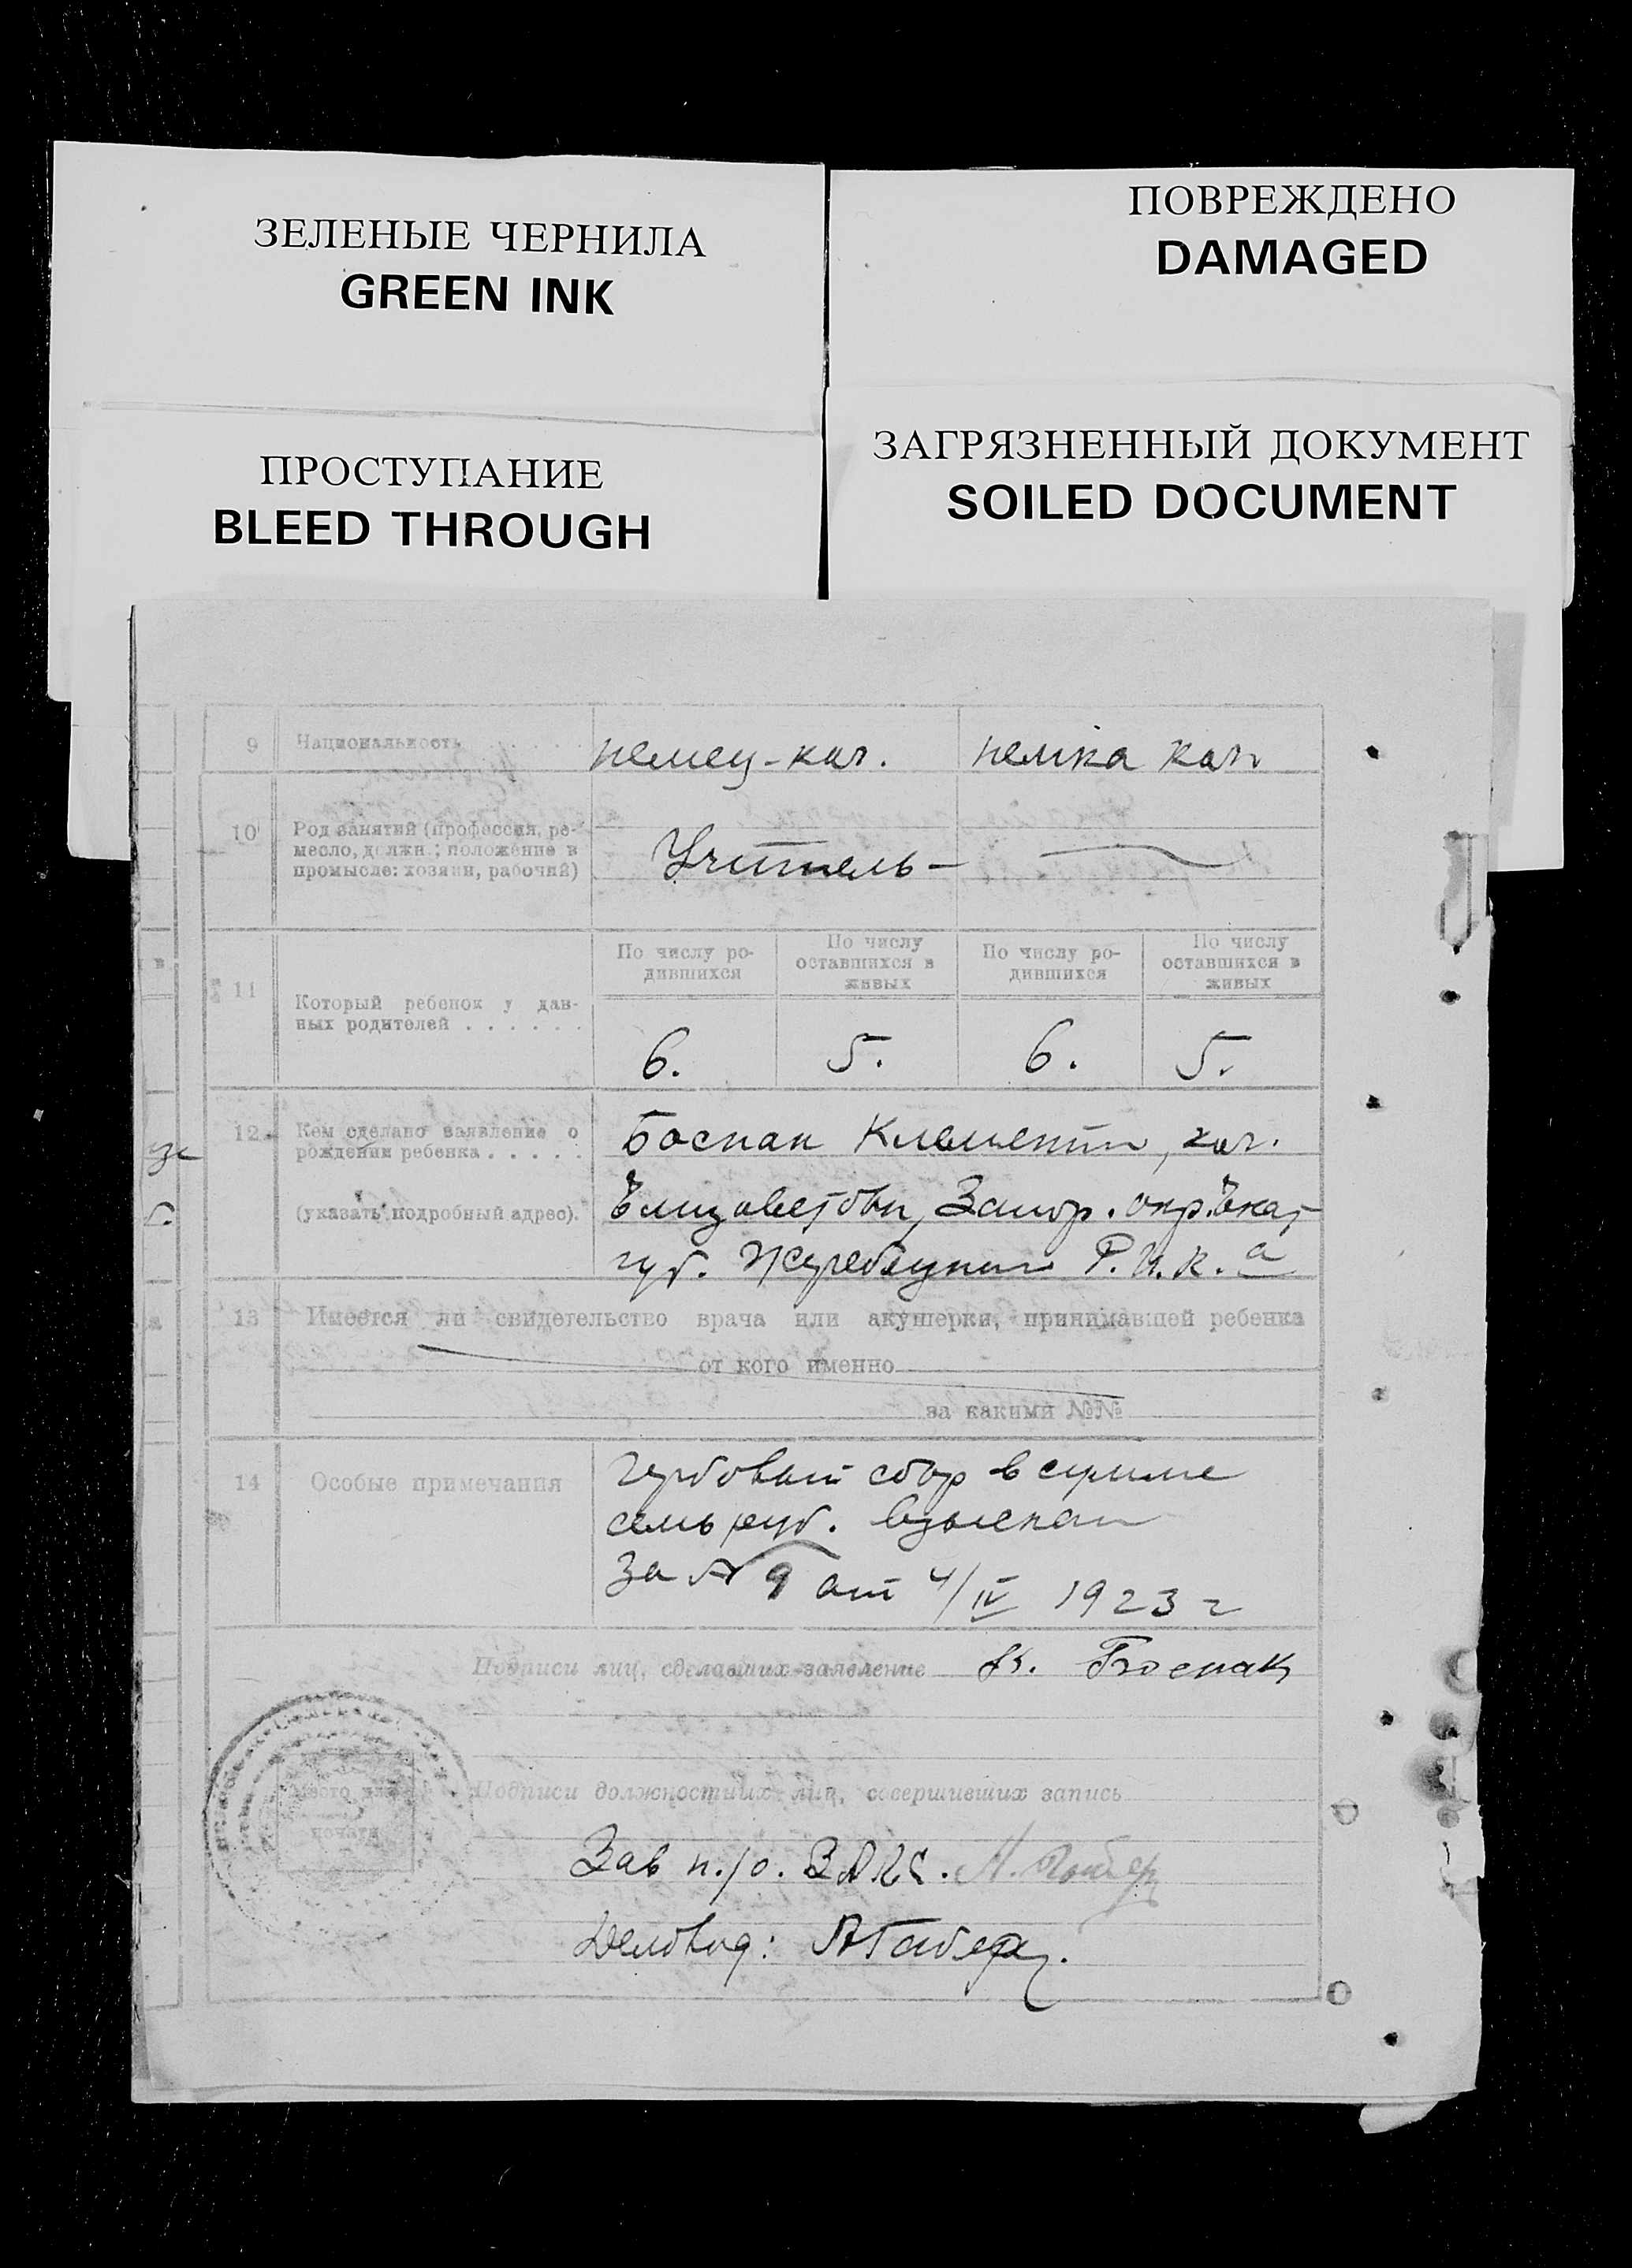 ЗЕЛЕНЫЕ ЧЕРНИЛА
GREEN INK
ПОВРЕЖДЕНО
DAMAGED
ПРОСТУПАНИЕ
BLEED THROUGH
ЗАГРЯЗНЕННЫЙ ДОКУМЕНТ
SOILED DOCUMENT
9 Национальность немец-кол. немка кол.
10 Род занятий (профессия, ре-
месло, должн.; положение в
промысле: хозяин, рабочий)
Учитель –
11 Который ребенок у дан-
ных родителей
По числу ро-
дившихся
По числу
оставшихся в
живых
По числу ро-
дившихся
По числу
оставшихся в
живых
6. 5. 6. 5.
12 Кем сделано заявление о
рождении ребенка
(указать подробный адрес).
Боснак Клементи, кол.
Елизаветовки, Запор. окр. Екат
губ. Жеребецкий Р.И.К.а
13 Имеется ли свидетельство врача или акушерки, принимавшей ребенка
от кого именно
за какими №№
14 Особые примечания
Гербовый сбор в сумме
семь руб. взыскан
За № 9 от 4/IV 1923 г
Подписи лиц, сделавших заявление К. Боснак
место для
печати
Подписи должностных лиц, совершивших запись
Зав п./о. ЗАГС.
Деловод: